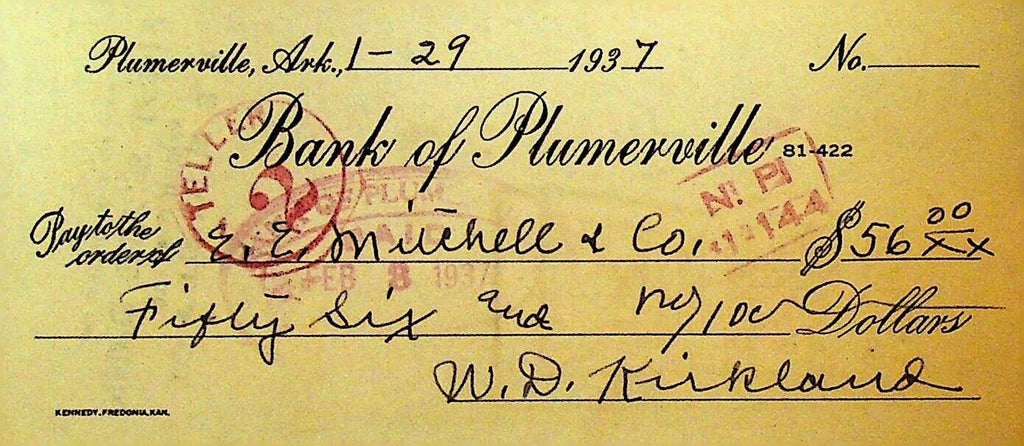 Plumerville, Ark., 1-29 1937 No.
Bank of Plumerville 81-422
TELLER
2
N! PI
144
Pay to the order of E. E. Mitchell & Co. $56 00/xx
FEB 8 1937
Fifty Six and no/100 Dollars
W. D. Kirkland
KENNEDY, FREDONIA, KAN.